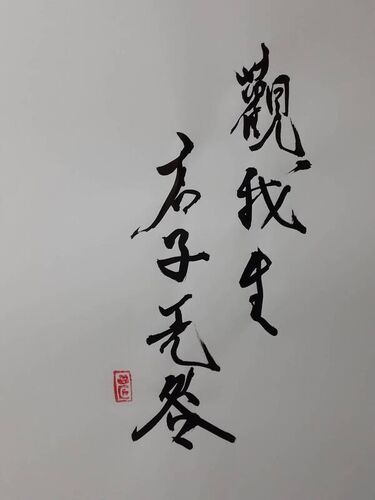 觀我生
君子无咎